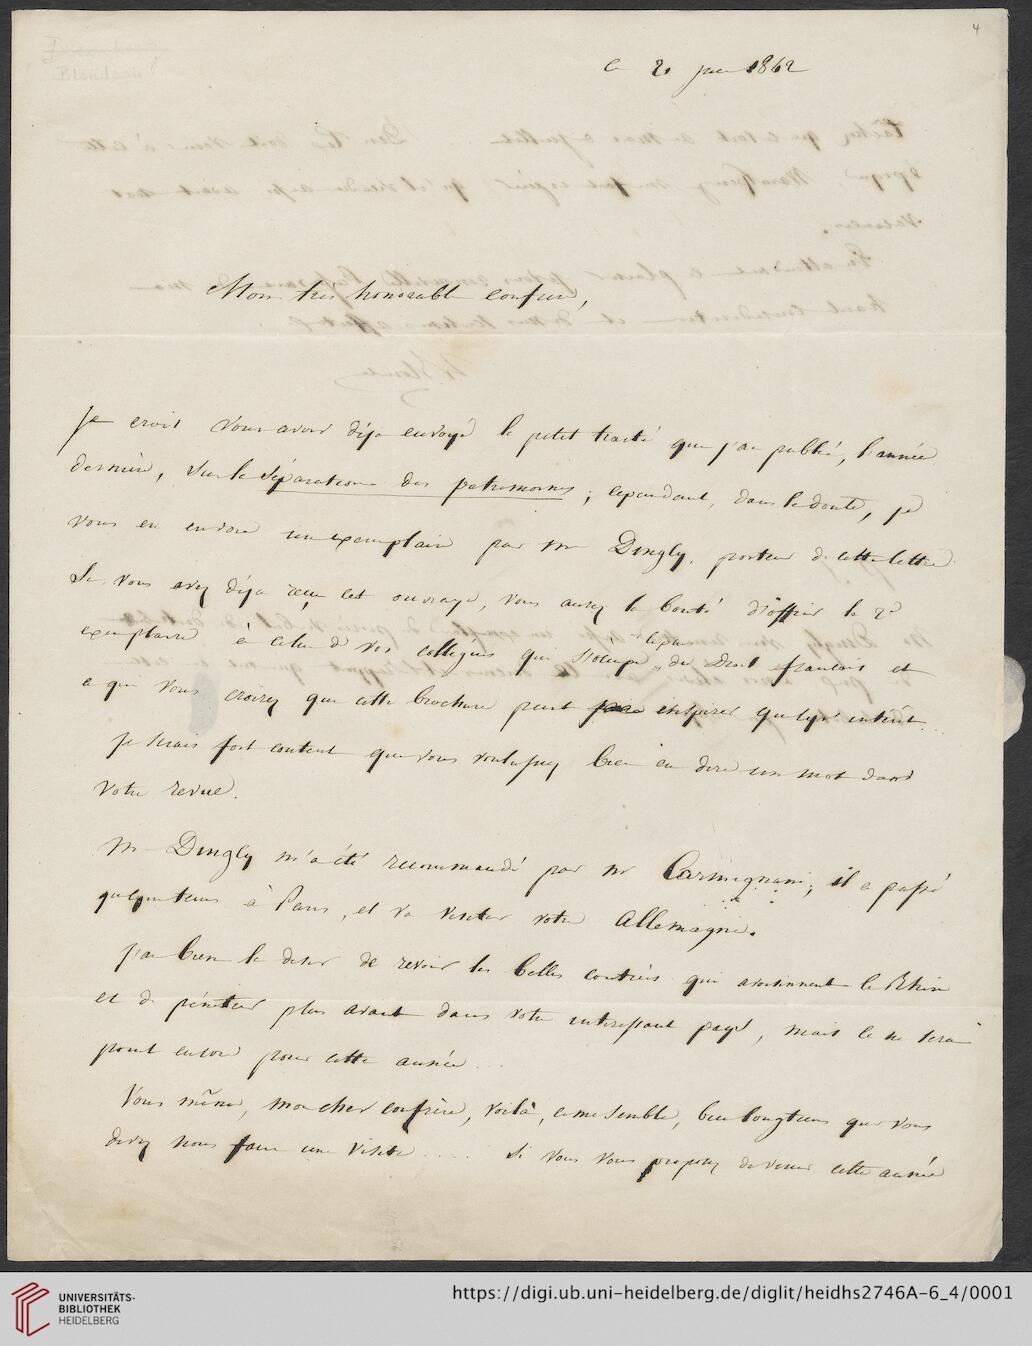 4
Blondeau
le 20 juin 1862
Mon très honorable confrère,
Je crois vous avoir déja envoyé le petit traité que j'ai publié, l'année
dernière, sur la Séparation des patrimoines ; cependant, dans le doute, je
vous en envoie un exemplaire par Mr Dingly, porteur de cette lettre.
Si vous avez déja reçu cet ouvrage, vous aurez la bonté d'offrir le 2e
exemplaire à celui de vos collègues qui s'occupe le plus du Droit français et
a qui vous croirez que cette brochure peut inspirer quelqu'intérêt...
Je serais fort content que vous voulussiez bien en dire un mot dans
votre revue.
Mr Dingly m'a été recommandé par Mr Carmignani ; il a passé
quelque tems à Paris, et va visiter votre Allemagne.
J'ai bien le desir de revoir les belles contrées qui avoisinnent le Rhin
et de pénétrer plus avant dans votre intéressant pays, mais ce ne sera
point encore pour cette année ...
Vous même, mon cher confrère, voilà, ce me semble, bien longtems que vous
devez nous faire une visite ..... Si vous vous proposez de venir cette année
UNIVERSITÄTS-
BIBLIOTHEK
HEIDELBERG
https://digi.ub.uni-heidelberg.de/diglit/heidhs2746A-6_4/0001